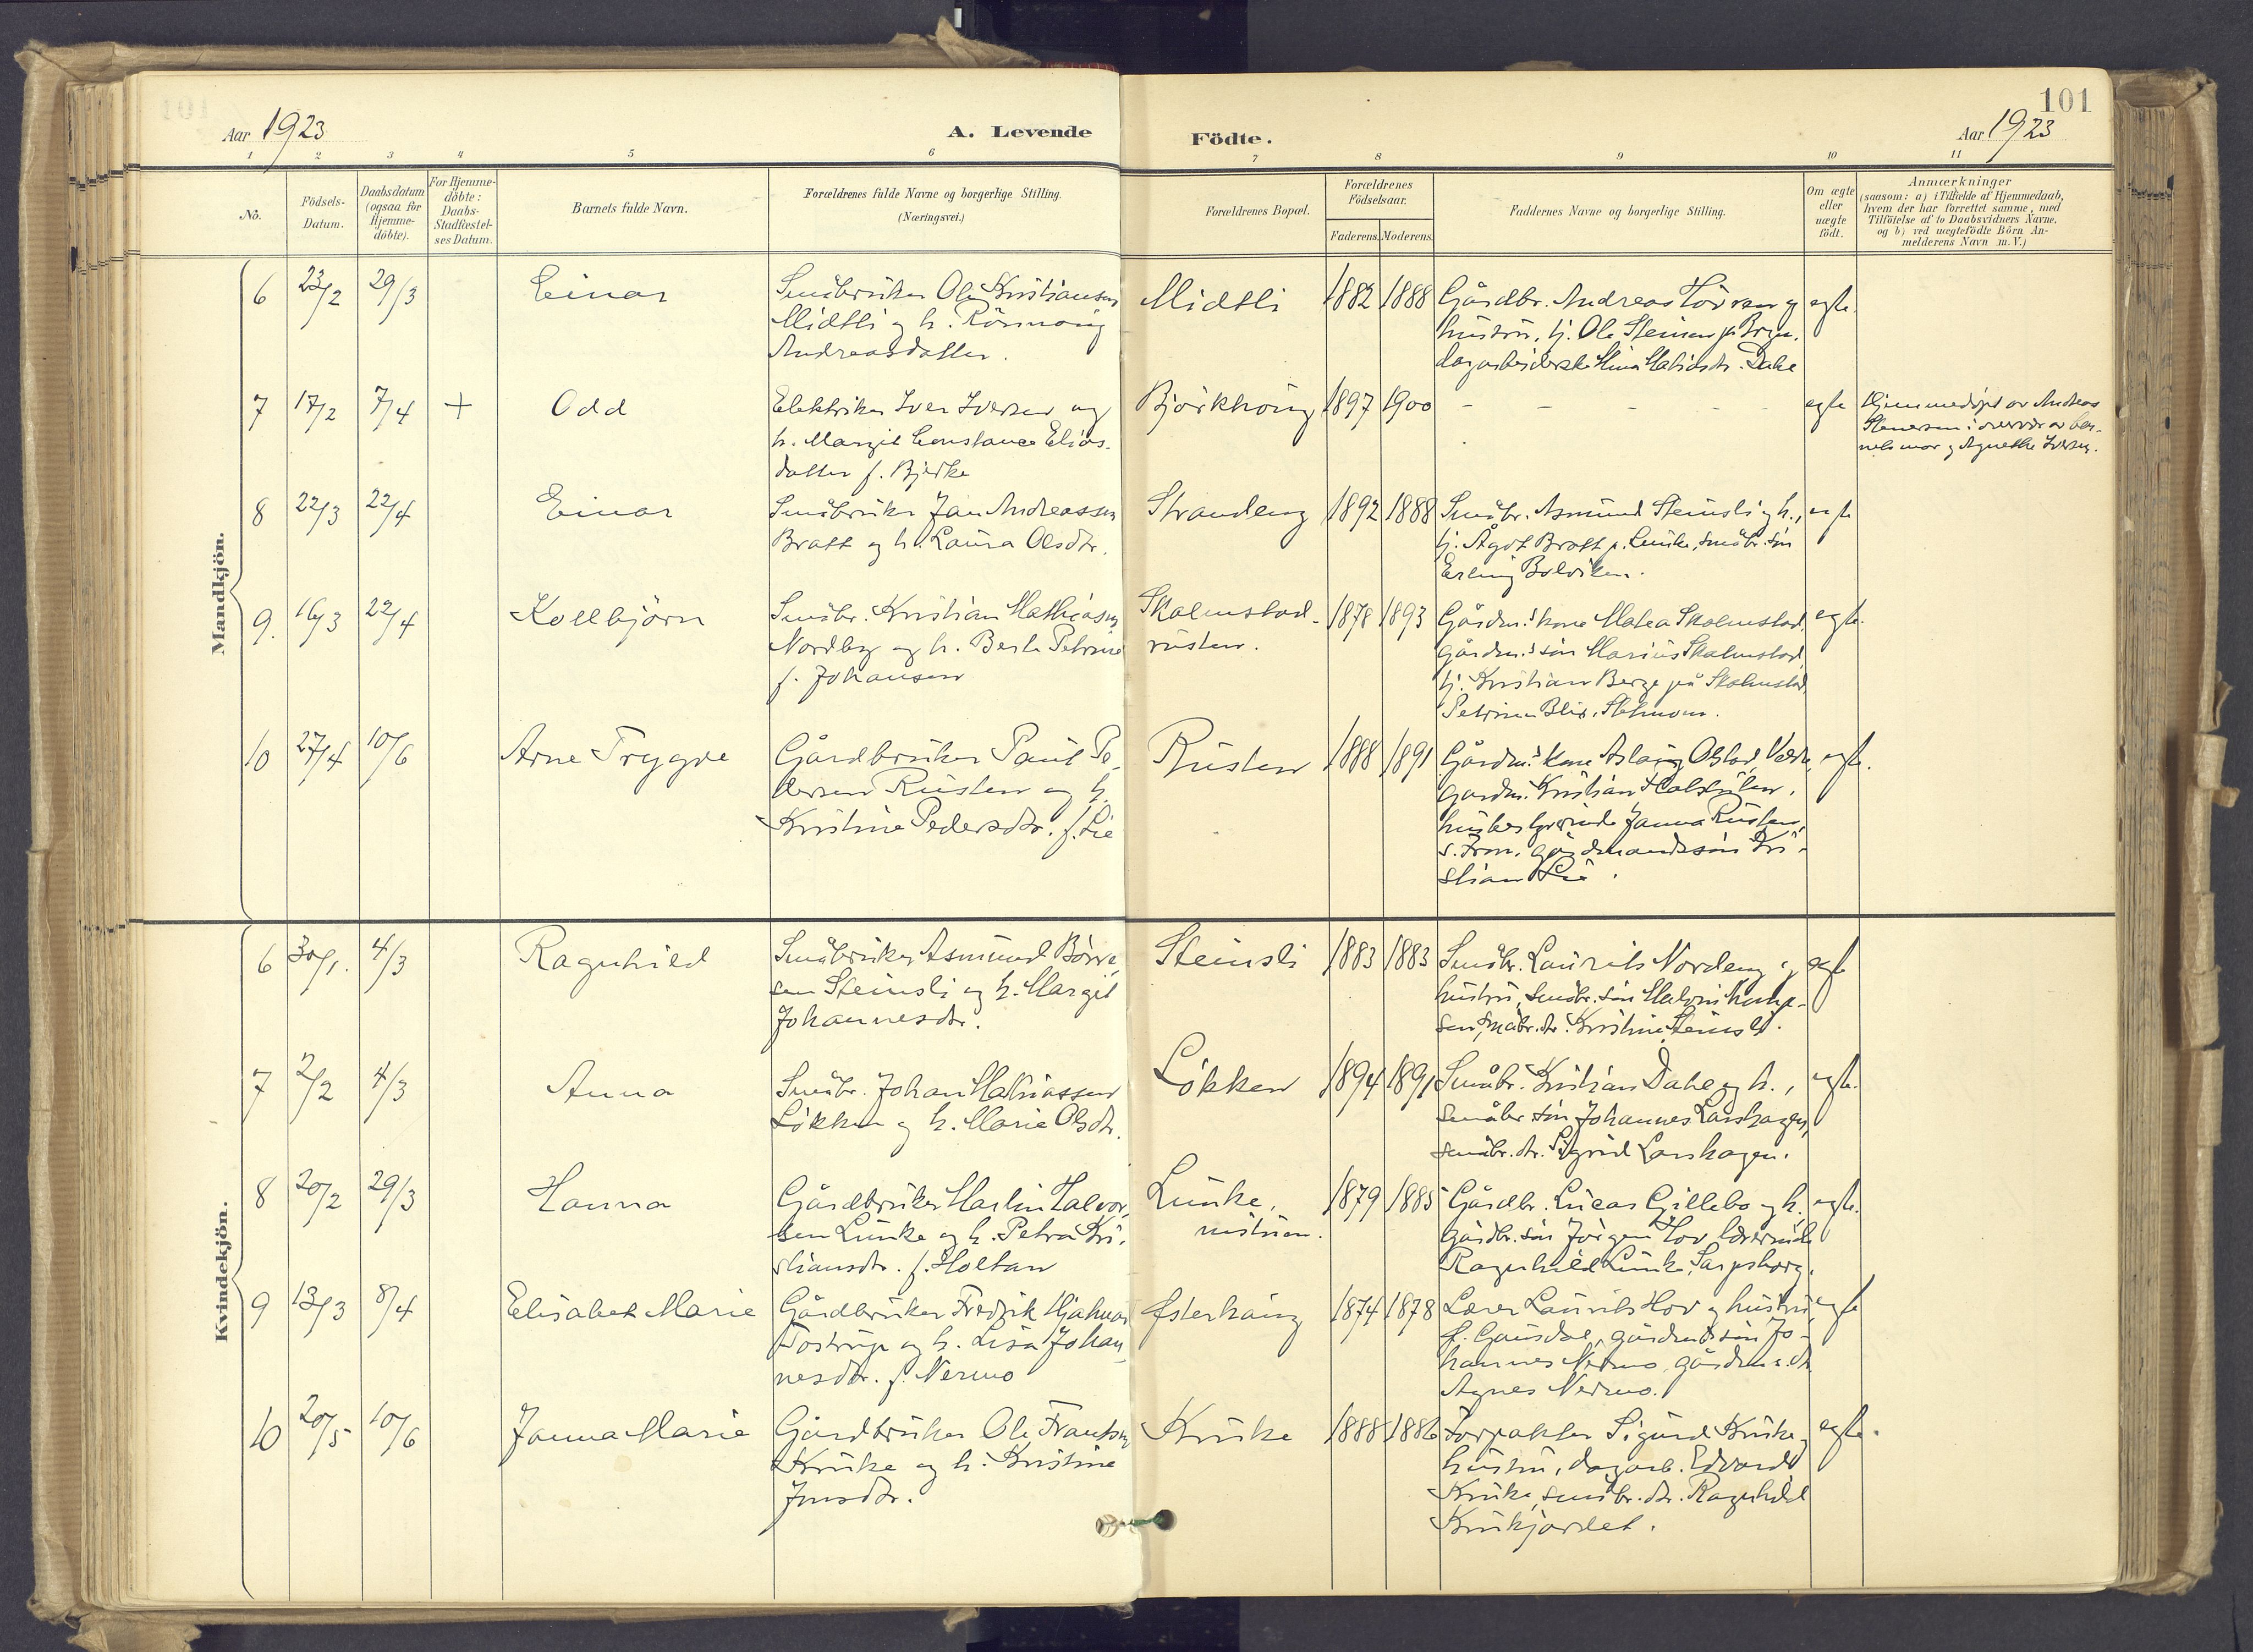 101
Aar 1923
A. Levende Födte.
Aar 1923
1 2 3 4 5 6 7 8 9 10 11
No.
Födsels-
Datum.
Daabsdatum
(ogsaa for
Hjemme-
döbte).
For Hjemme-
döbte:
Daabs-
Stadfæstel-
ses Datum.
Barnets fulde Navn.
Forældrenes fulde Navne og borgerlige Stilling.
(Næringsvei.)
Forældrenes Bopæl.
Forældrenes
Födselsaar.
Faderens. Moderens.
Faddernes Navne og borgerlige Stilling.
Om ægte
eller
uægte
födt.
Anmærkninger
(saasom: a) i Tilfælde af Hjemmedaab,
hvem der har forrettet samme, med
Tilföielse af to Daabsvidners Navne,
og b) ved uægtefödte Börn An-
melderens Navn m. V.)
Mandkjön.
6 23/2 29/3 Einar
Småbruker Ole Kristiansen
Midtli og h. Rönnaug
Andreasdatter.
Midtli 1882 1888
Gårdbr. Andreas og
hustru, tj. Ole
egte.
7 17/2 7/4 + Odd
Elektriker Iver Iversen og
h. Margit Constance Elias-
datter f. Bjerke
Björkhaug 1897 1900
- - - - -
egte
Hjemmedöpt av Andreas
Stenersen i overvær av bar-
nets mor og Agnethe Iversen.
8 22/3 22/4 Einar
Småbruker Jan Andreassen
Bratt og h. Laura Olsdtr.
Strandeng 1892 1888
Småbr. Asmund Steinsli og h.,
tj. Ågot Bratt p. Lunke, småbr. sön
Erling Bolviken.
egte
9. 16/3 22/4 Kollbjörn
Småbr. Kristian Mathiasen
Nordby og h. Berte Petrine
f. Johansen
Skalmstad-
rusten.
1878 1893
Gårdm.s kone Matea Skalmstad,
gårdm.s sön Marius Skalmstad,
tj. Kristian Berge på Skalmstad,
Petrine
egte.
10 27/4 10/6 Arne Trygve
Gårdbruker Paul Pe-
dersen Rusten og h.
Kristine Pedersdtr. f. Lie
Rusten 1888 1891
Gårdm.s kone Aslaug Olstad,
gårdm. Kristian
husbestyrerinde Janna Rusten,
gårdmandssön Kri-
stian Lie.
egte.
Kvindekjön.
6 30/1. 4/3 Ragnhild
Småbruker Asmund Börre-
sen Steinsli og h. Margit
Johannesdtr.
Steinsli 1883 1883
Småbr. Laurits Nordeng og
hustru, småbr. sön
småbr. dtr. Kristine Steinsli.
egte
7 2/2 4/3 Anna
Småbr. Johan Mathiassen
Lökken og h. Marie Olsdtr.
Lökken 1894 1891
Småbr. Kristian Dahl og h.,
småbr. sön Johannes Larshagen,
småbr. dtr. Sigrid Larshagen.
egte.
8 20/2 29/3 Hanna
Gårdbruker Martin Halvor-
sen Lunke og h. Petra Kri-
stiansdtr. f. Holtan
Lunke,
1879 1885
Gårdbr. Lucas Gillebo og h.
gårdbr. sön Jörgen Hov, lærerinde
Ragnhild Lunke, Sarpsborg.
egte.
9 13/3 8/4 Elisabet Marie
Gårdbruker Fredrik Hjalmar
Tostrup og h. Lisa Johan-
nesdtr. f. Nermo
1874 1878
Lærer Laurits Hov og hustru,
Gausdal, gårdm.s sön Jo-
hannes Nermo, gårdm.s dtr.
Agnes Nermo.
egte
10 20/5 10/6 Janna Marie
Gårdbruker Ole Frantsen
Kruke og h. Kristine
Jensdtr.
Kruke 1888 1886
Forpakter Sigurd Kruke og
hustru, dagarb. Edvard
Kruke, småbr. dtr. Ragnhild
Krukjordet.
egte.